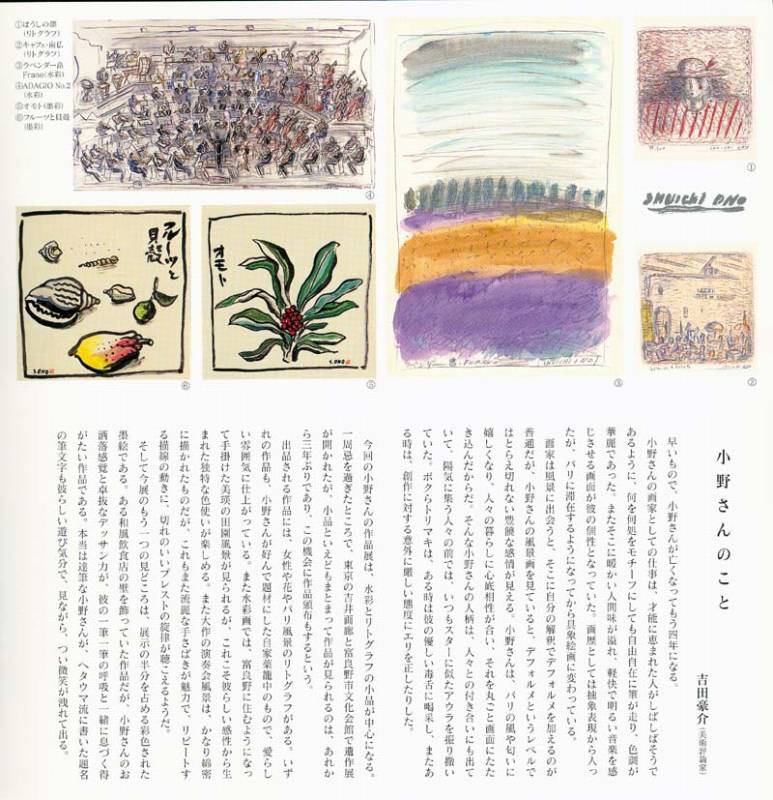 ①ぼうしの顔
(リトグラフ)
②キャフェ・南仏
(リトグラフ)
③ラベンダー畠
Frano(水彩)
④ADAGIO No.2
(水彩)
⑤オモト(墨彩)
⑥フルーツと貝殻
(墨彩)
④
①
SHUICHI ONO
フルーツと
貝殻
S.ONO
⑥
オモト
S.ONO
⑤
SHUICHI ONO
③
②
小野さんのこと
吉田豪介(美術評論家)
早いもので、小野さんが亡くなってもう四年になる。
小野さんの画家としての仕事は、才能に恵まれた人がしばしばそうで
あるように、何を何処をモチーフにしても自由自在に筆が走り、色調が
華麗であった。またそこに暖かい人間味が溢れ、軽快で明るい音楽を感
じさせる画面が彼の個性となっていた。画歴としては抽象表現から入っ
たが、パリに滞在するようになってから具象絵画に変わっている。
画家は風景に出会うと、そこに自分の解釈でデフォルメを加えるのが
普通だが、小野さんの風景画を見ていると、デフォルメというレベルで
はとらえ切れない豊饒な感情が見える。小野さんは、パリの風や匂いに
嬉しくなり、人々の暮らしに心底相性が合い、それを丸ごと画面にたた
き込んだからだ。そんな小野さんの人柄は、人々との付き合いにも出て
いて、陽気に集う人々の前では、いつもスターに似たアウラを振り撒い
ていた。ボクらトリマキは、ある時は彼の優しい毒舌に喝采し、またあ
る時は、創作に対する意外に厳しい態度にエリを正したりした。
今回の小野さんの作品展は、水彩とリトグラフの小品が中心になる。
一周忌を過ぎたところで、東京の吉井画廊と富良野市文化会館で遺作展
が開かれたが、小品といえどもまとまって作品が見られるのは、あれか
ら三年ぶりであり、この機会に作品頒布もするという。
出品される作品には、女性や花やパリ風景のリトグラフがある。いず
れの作品も、小野さんが好んで題材にした自家薬籠中のもので、愛らし
い雰囲気に仕上がっている。また水彩画では、富良野に住むようになっ
て手掛けた美瑛の田園風景が見られるが、これこそ彼らしい感性から生
まれた独特な色使いが楽しめる。また大作の演奏会風景は、かなり綿密
に描かれたものだが、これもまた流麗な手さばきが魅力で、リピートす
る描線の動きに、切れのいいプレストの旋律が聴こえるようだ。
そして今展のもう一つの見どころは、展示の半分を占める彩色された
墨絵である。ある和風飲食店の壁を飾っていた作品だが、小野さんのお
洒落感覚と卓抜なデッサン力が、彼の一筆一筆の呼吸と一緒に息づく得
がたい作品である。本当は達筆な小野さんが、ヘタウマ流に書いた題名
の筆文字も彼らしい遊び気分で、見ながら、つい微笑が洩れて出る。